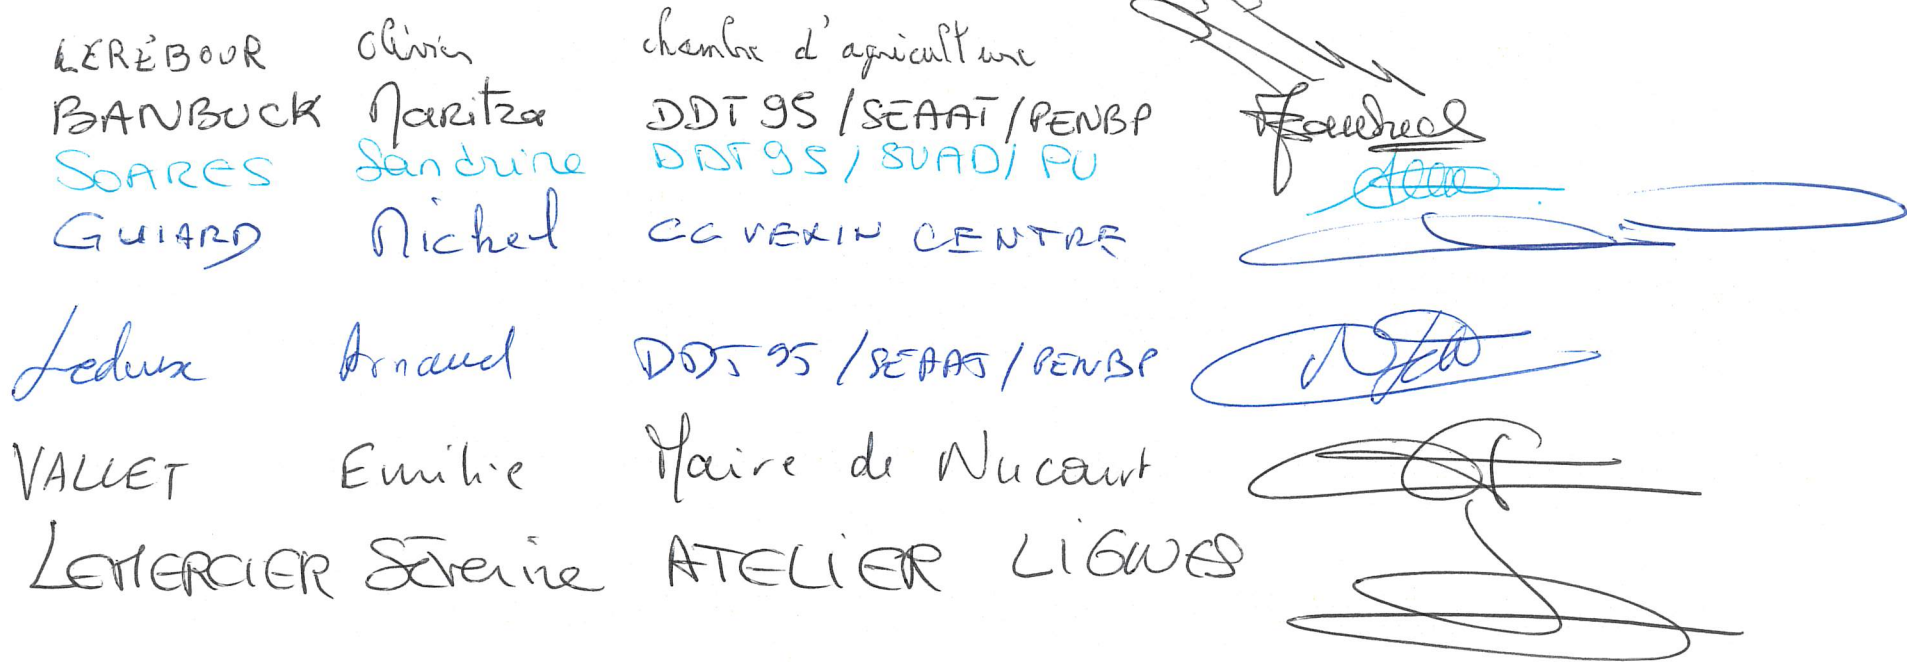 LEREBOUR Olivier chambre d'agriculture
BANBUCK Maritza DDT 95 / SEAAT / PENBP
SOARES Sandrine DDT 95 / SUAD / PU
GUIARD Michel CC VEXIN CENTRE
Arnaud DDT 95 / SEAAT / PENBP
VALLET Emilie Maire de Nucourt
LEMERCIER Séverine ATELIER LIGNES